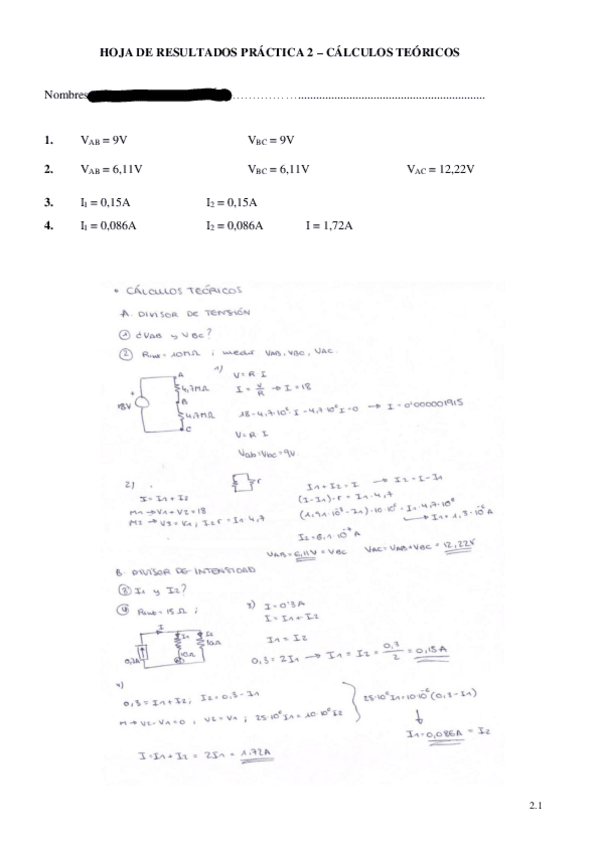 HOJA DE RESULTADOS PRÁCTICA 2 – CÁLCULOS TEÓRICOS
Nombres
1. VAB = 9V VBC = 9V
2. VAB = 6,11V VBC = 6,11V VAC = 12,22V
3. I1 = 0,15A I2 = 0,15A
4. I1 = 0,086A I2 = 0,086A I = 1,72A
* CÁLCULOS TEÓRICOS
A. DIVISOR DE TENSIÓN
① ¿VAB y VBC?
② Rint = 10MΩ ; medir VAB, VBC, VAC.
1) V = R·I
I = V/R → I = 18
18 - 4,7·10⁶·I - 4,7·10⁶ I = 0 → I = 0'000001915
V = R·I
Vab = Vbc = 9V
A
4,7MΩ
B
4,7MΩ
C
18V
2)
I = I1 + I2
M1 → V1 + V2 = 18
M2 → V3 = V1 ; I2r = I1·4,7
r
I1 + I2 = I → I2 = I - I1
(I - I1)·r = I1·4,7
I1 = 1,3·10⁻⁶A
VAB = 6,11V = VBC VAC = VAB + VBC = 12,22V
B. DIVISOR DE INTENSIDAD
③ I1 y I2?
④ Rint = 15Ω ;
I
I1
I2
0,3A
10Ω
10Ω
3) I = 0'3A
I = I1 + I2
I1 = I2
0,3 = 2I1 → I1 = I2 = 0,3/2 = 0,15A
4)
0,3 = I1 + I2 ; I2 = 0,3 - I1
M → V2 - V1 = 0 , V2 = V1 ; 25·10⁶I1 = 10·10⁶I2
25·10⁶I1 = 10·10⁻⁶(0,3 - I1)
I1 = 0,086A = I2
I = I1 + I2 = 2I1 = 1,72A
2.1